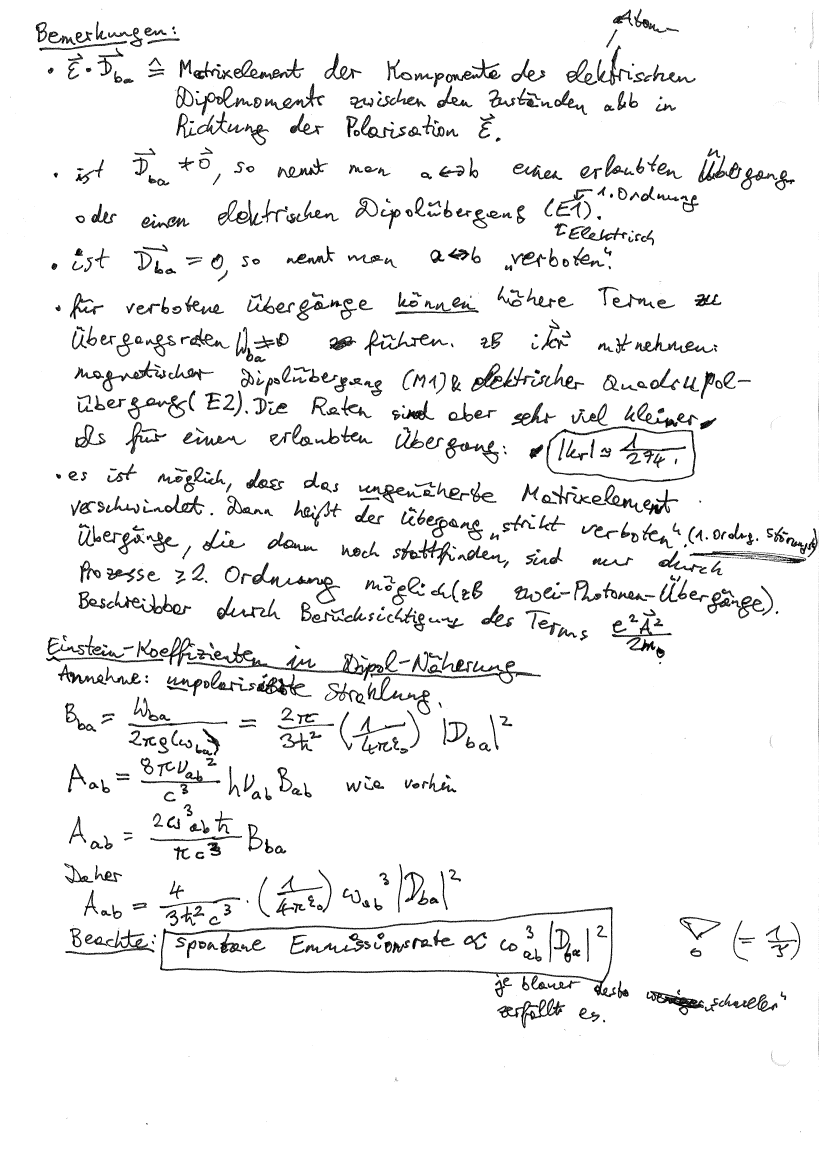 Atom
Bemerkungen:
• ε⃗ · D⃗_ba ≙ Matrixelement der Komponente des elektrischen
Dipolmoments zwischen den Zuständen a&b in
Richtung der Polarisation ε⃗.
• ist D⃗_ba ≠ 0⃗, so nennt man a↔b einen erlaubten Übergang
1. Ordnung
oder einen elektrischen Dipolübergang (E1).
Elektrisch
• ist D⃗_ba = 0, so nennt man a↔b „verboten".
• für verbotene Übergänge können höhere Terme zu
Übergangsraten W_ba ≠ 0 führen. zB ik⃗r⃗ mitnehmen:
magnetischer Dipolübergang (M1) & elektrischer Quadrupol-
übergang (E2). Die Raten sind aber sehr viel kleiner
als für einen erlaubten Übergang: |kr| ≃ 1/274.
• es ist möglich, dass das ungenäherte Matrixelement
verschwindet. Dann heißt der Übergang „strikt verboten". (1. Ordng. Störungst)
Übergänge, die dann noch stattfinden, sind nur durch
Prozesse ≥ 2. Ordnung möglich (zB zwei-Photonen-Übergänge).
Beschreibbar durch Berücksichtigung des Terms e²A⃗²/2m_e
Einstein-Koeffizienten in Dipol-Näherung
Annahme: unpolarisierte Strahlung.
B_ba = W_ba / 2πg(ω_ba) = 2π/3ħ² (1/4πε₀) |D_ba|²
A_ab = 8πν_ab²/c³ hν_ab B_ab wie vorhin
A_ab = 2ω³_ab ħ / πc³ B_ba
Daher
A_ab = 4/3ħ²c³ · (1/4πε₀) ω_ab³ |D_ba|²
Beachte: spontane Emmissionsrate ∝ ω_ab³ |D_ba|² (= 1/3)
je blauer desto „schneller"
zerfällt es.